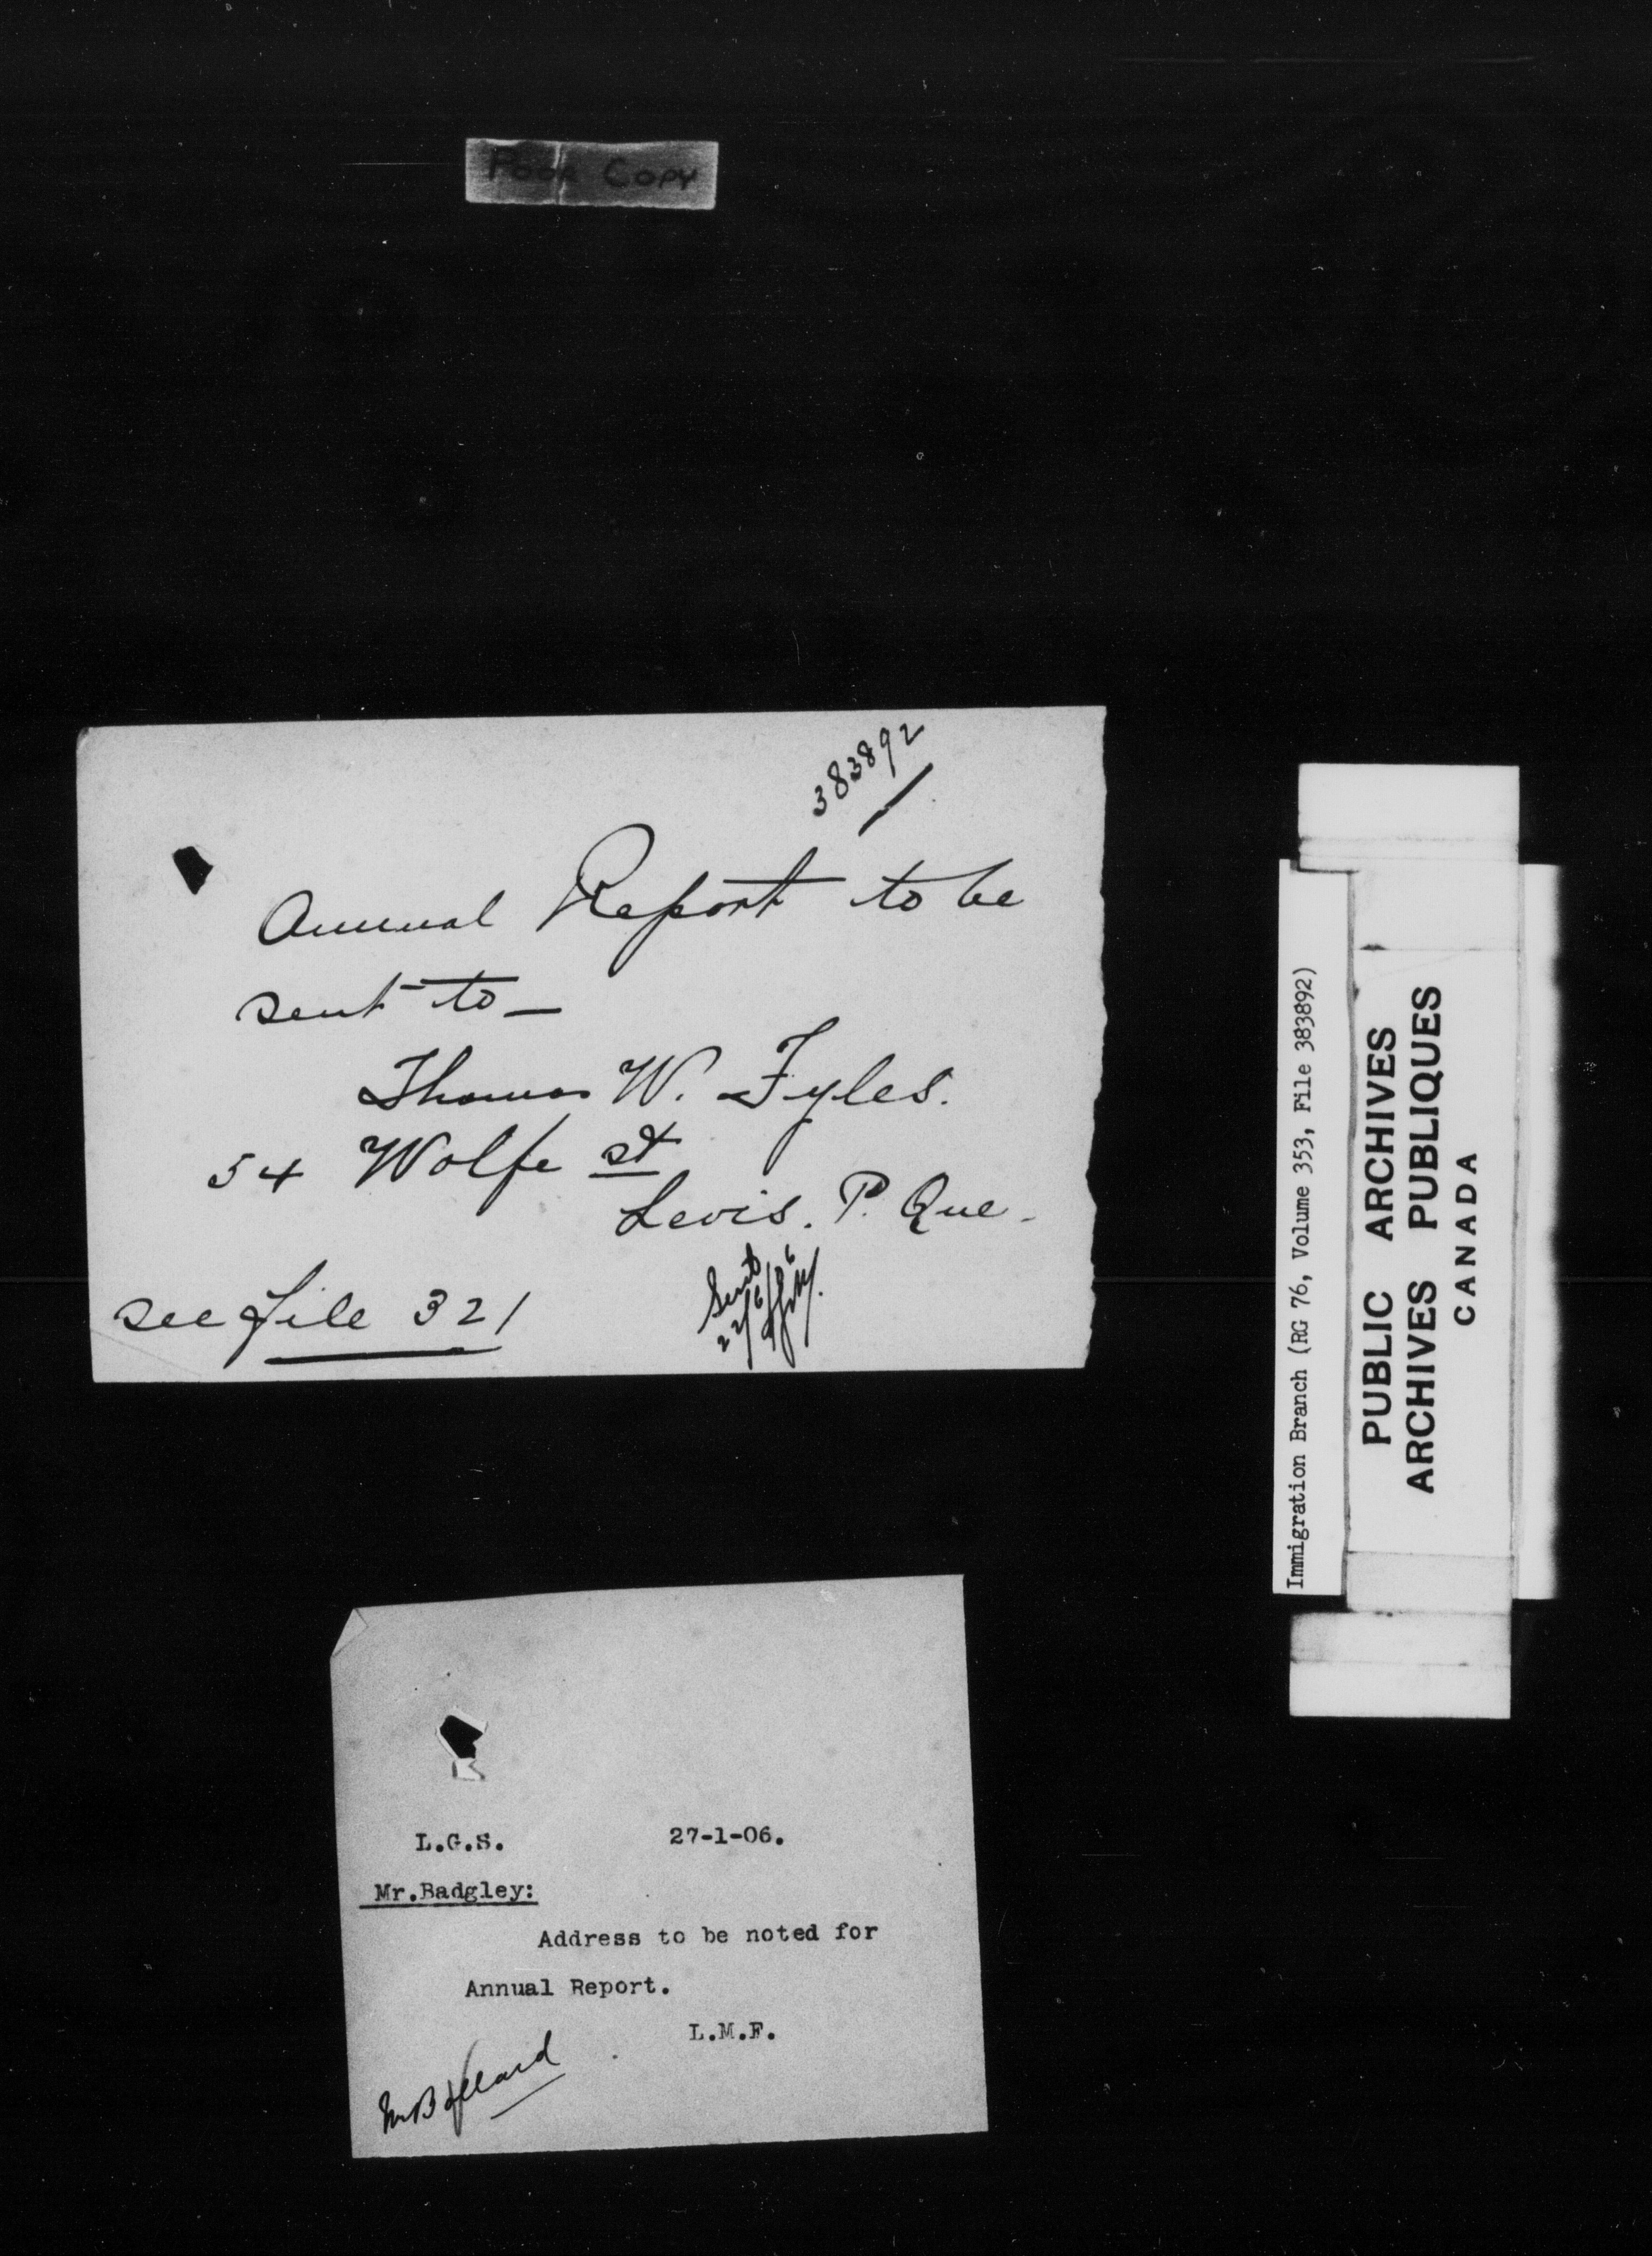 Poor Copy
383892
Annual Report to be
sent to -
Thomas W. Fyles.
54 Wolfe st
Levis. P. Que.
see file 321
Sent
L.G.S. 27-1-06.
Mr.Badgley:
Address to be noted for
Annual Report.
L.M.F.
Immigration Branch (RG 76, Volume 353, File 383892)
PUBLIC ARCHIVES
ARCHIVES PUBLIQUES
CANADA